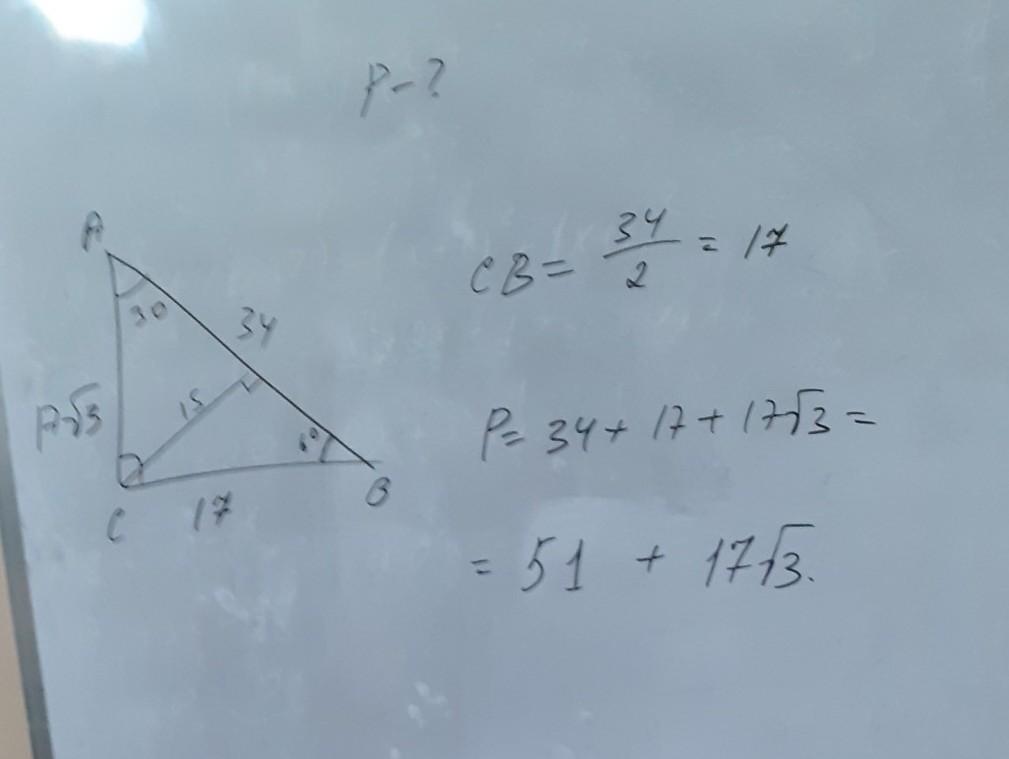 P-?
A
30
34
CB = 34/2 = 17
15
17√3
60
P = 34 + 17 + 17√3 =
C
17
B
= 51 + 17√3.